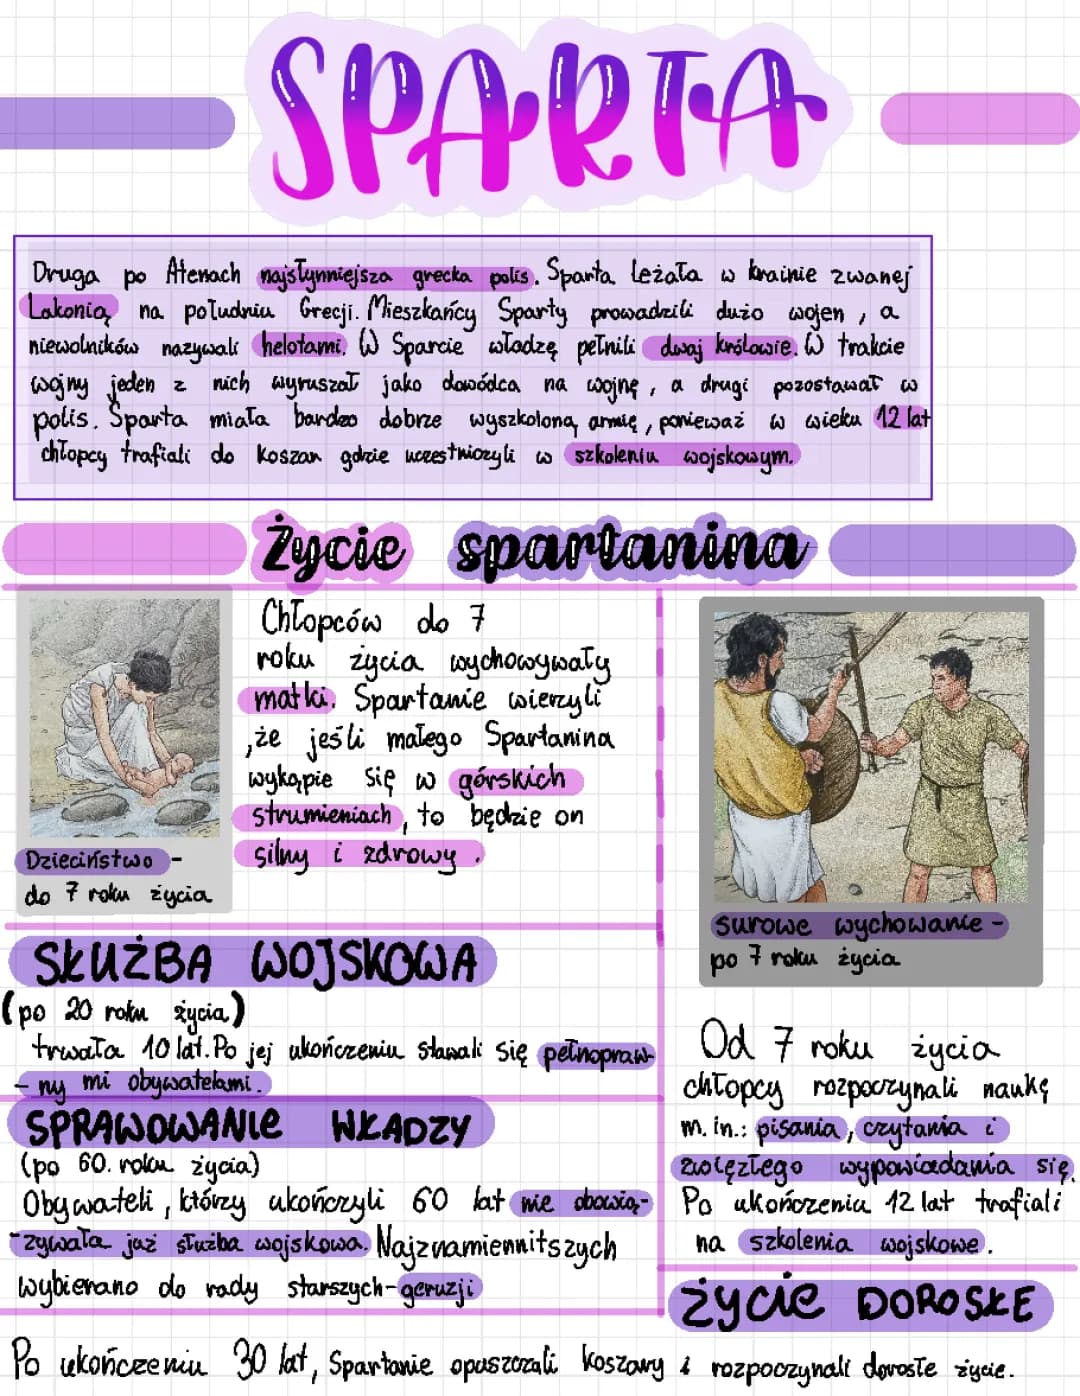 SPARTA
Druga po Atenach najsłynniejsza grecka polis. Sparta leżała w krainie zwanej
Lakonią na południu Grecji. Mieszkańcy Sparty prowadzili dużo wojen, a
niewolników nazywali helotami. W Sparcie władzę pełnili dwaj królowie. W trakcie
wojny jeden z nich wyruszał jako dowódca na wojnę, a drugi pozostawał w
polis. Sparta miała bardzo dobrze wyszkoloną armię, ponieważ w wieku 12 lat
chłopcy trafiali do koszar gdzie uczestniczyli w szkoleniu wojskowym.
Życie spartanina
Chłopców do 7
roku życia wychowywały
matki. Spartanie wierzyli
,że jeśli małego Spartanina
wykąpie się w górskich
strumieniach, to będzie on
silny i zdrowy.
Dzieciństwo -
do 7 roku życia
surowe wychowanie -
po 7 roku życia
SŁUŻBA WOJSKOWA
(po 20 roku życia)
trwała 10 lat. Po jej ukończeniu stawali się pełnopraw-
- ny mi obywatelami.
SPRAWOWANIE WŁADZY
(po 60. roku życia)
Obywateli, którzy ukończyli 60 lat nie obowią-
-zywała już służba wojskowa. Najznamiennitszych
wybierano do rady starszych-geruzji
Od 7 roku życia
chłopcy rozpoczynali naukę
m. in.: pisania, czytania i
zwięzłego wypowiadania się.
Po ukończeniu 12 lat trafiali
na szkolenia wojskowe.
ŻYCIE DOROSŁE
Po ukończeniu 30 lat, Spartanie opuszczali koszary i rozpoczynali dorosłe życie.